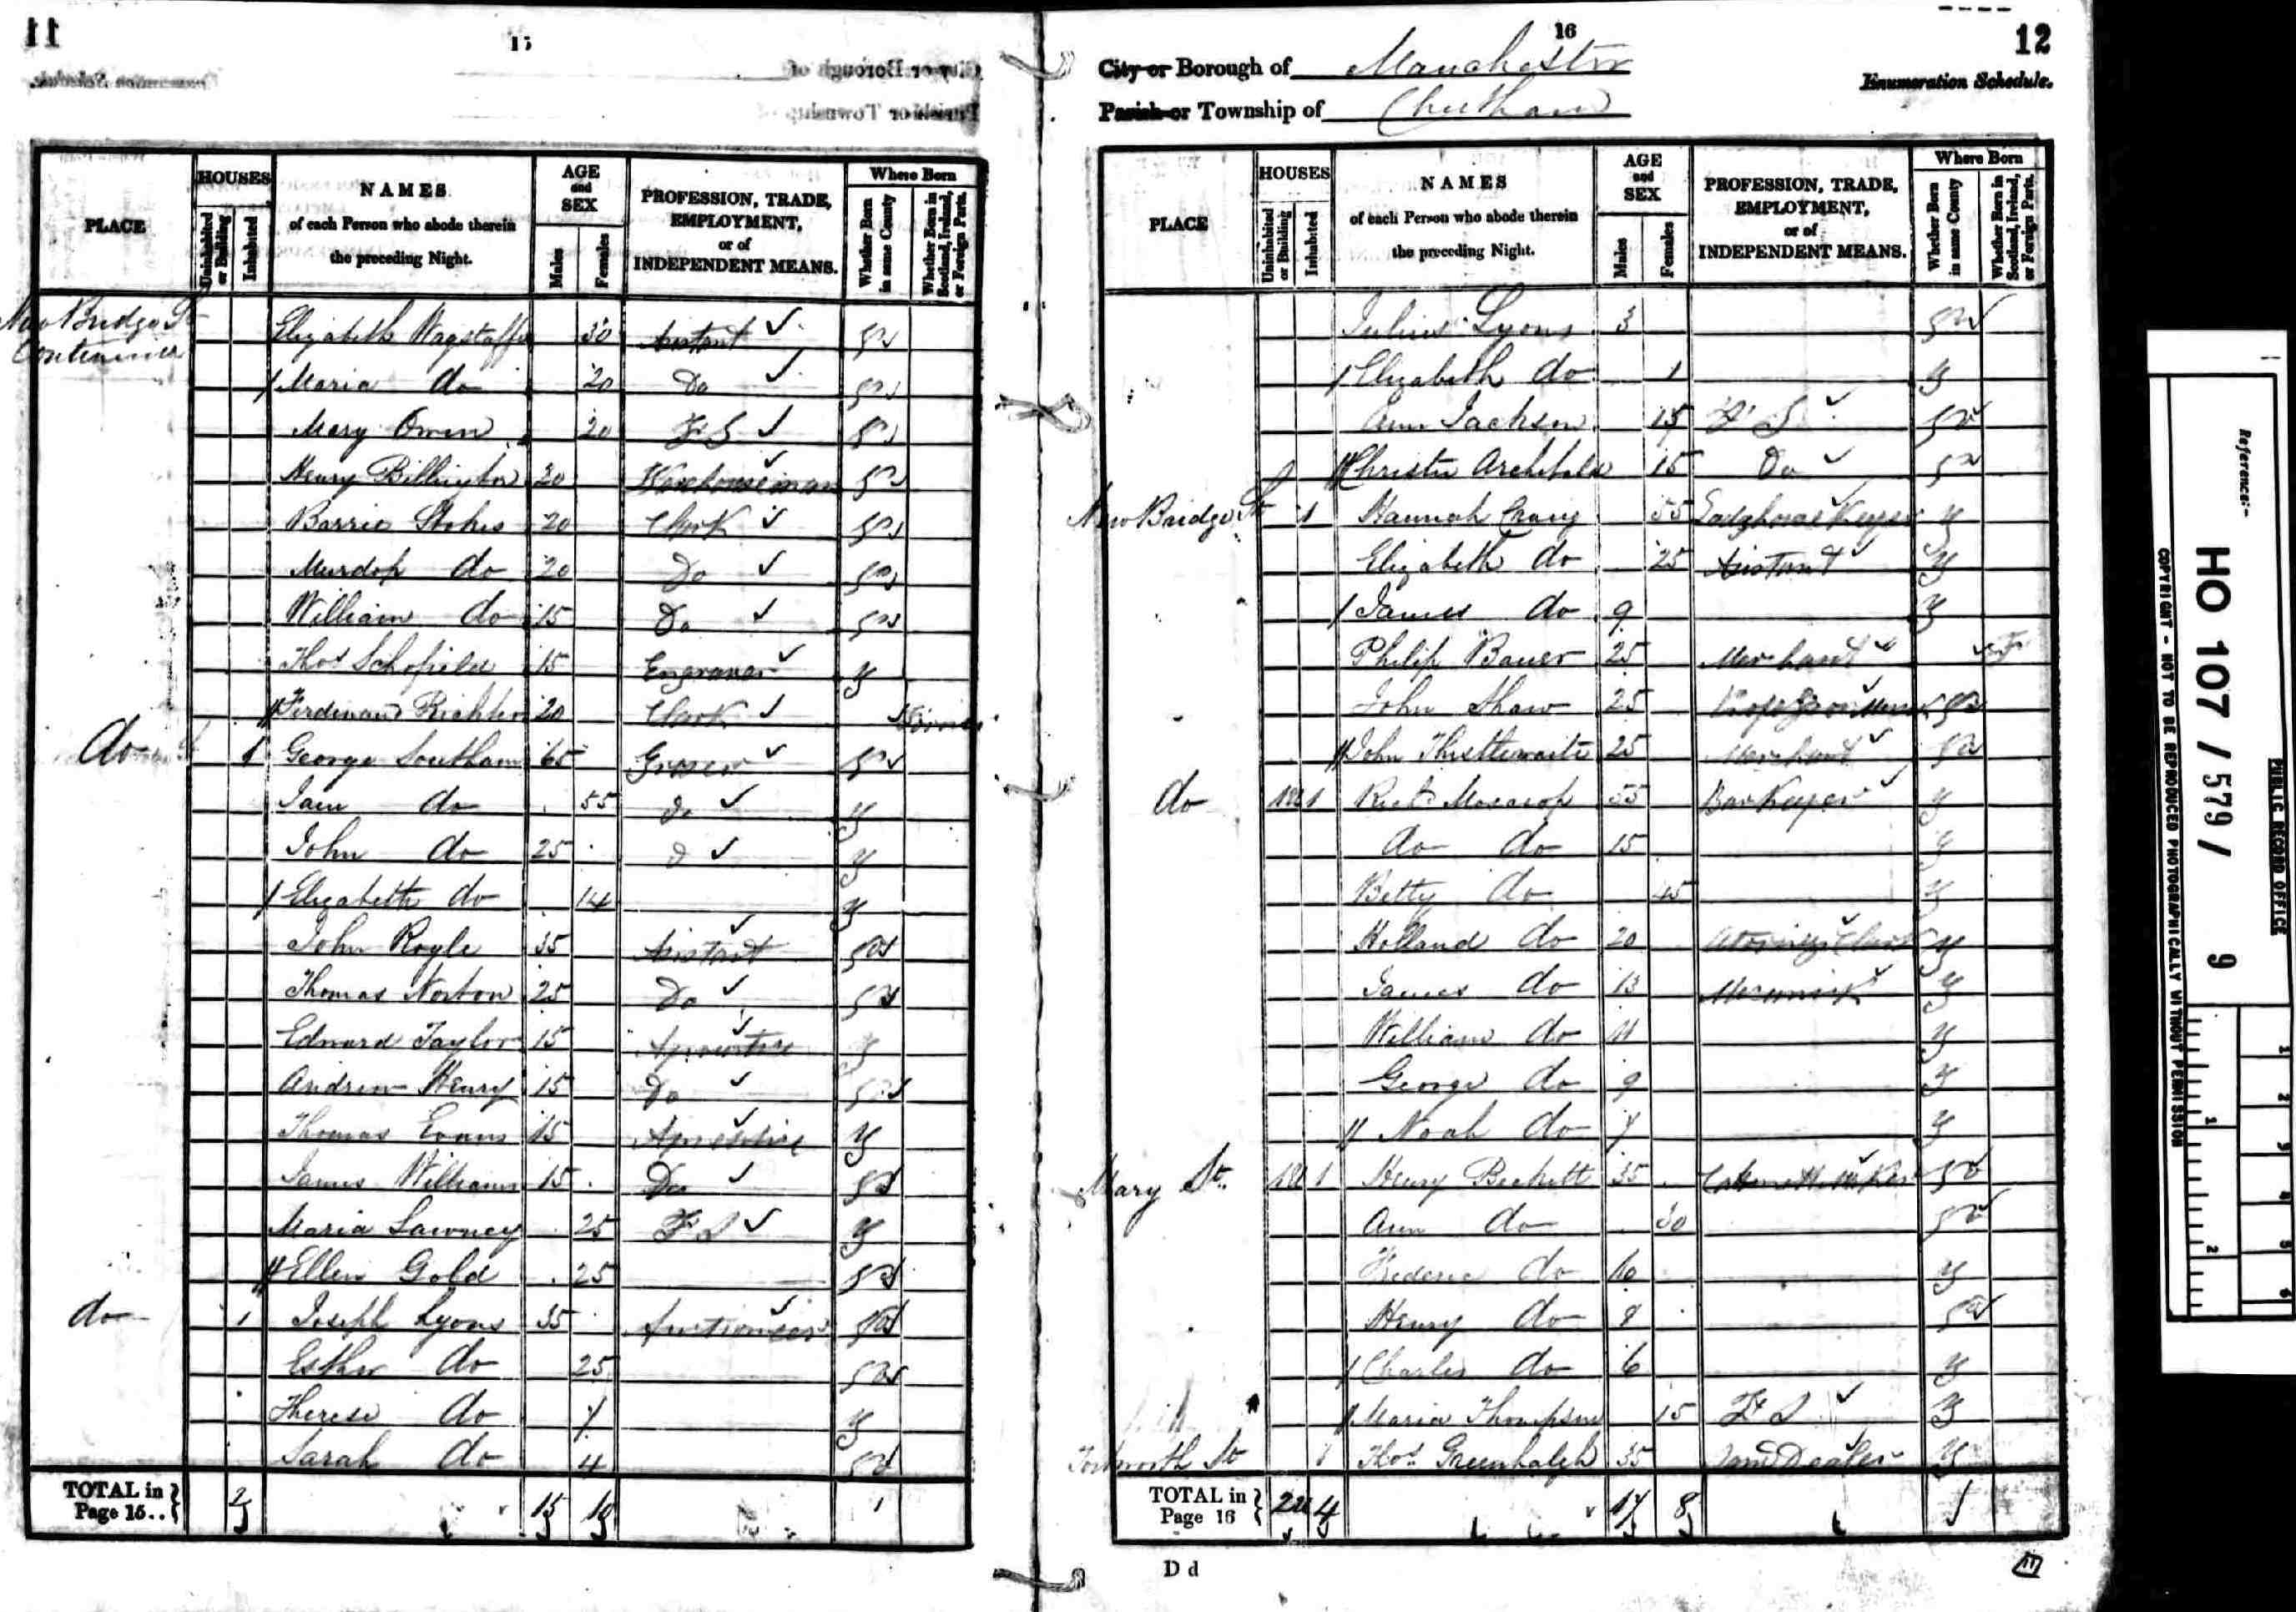 11
15
City or Borough of
Parish or Township of
Enumeration Schedule.
PLACE
HOUSES
Uninhabited or Building
Inhabited
NAMES
of each Person who abode therein
the preceding Night.
AGE
and
SEX
Males
Females
PROFESSION, TRADE,
EMPLOYMENT,
or of
INDEPENDENT MEANS.
Where Born
Whether Born in same County
Whether Born in Scotland, Ireland, or Foreign Parts.
New Bridge St Elizabeth Wagstaffe 30 Asistant ✓ n
Continued
Maria do 20 Do ✓ n
Mary Owen 20 F S ✓ n
Henry Billington 20 Warehouseman ✓ n
Barrie Stokes 20 Clerk ✓ n
Murdoh do 20 Do ✓ n
William do 15 Do ✓ n
Thos Schofield 15 Engraver ✓ y
Ferdinand Richter 20 Clerk ✓
do 1 George Southam 65 Groser ✓ n
Jain do 55 do ✓ y
John do 25 ✓ y
Elizabeth do 14 y
John Royle 35 Asistant ✓ n
Thomas Norton 25 Do ✓ n
Edward Taylor 15 ✓ y
Andrew Henry 15 Do ✓ n
Thomas Evans 15 ✓ y
James Williams 15 Do ✓ n
Maria Lawney 25 F S ✓ y
Ellen Gold 25 n
do 1 Joseph Lyons 35 Auctioneer ✓ n
Esther do 25 n
Therese do 7 y
Sarah do 4 n
TOTAL in
Page 15.. } 2 15 10
16
12
City or Borough of Manchester
Parish or Township of Cheetham
Enumeration Schedule.
PLACE
HOUSES
Uninhabited or Building
Inhabited
NAMES
of each Person who abode therein
the preceding Night.
AGE
and
SEX
Males
Females
PROFESSION, TRADE,
EMPLOYMENT,
or of
INDEPENDENT MEANS.
Where Born
Whether Born in same County
Whether Born in Scotland, Ireland, or Foreign Parts.
Julius Lyons 3 n
Elizabeth do 1 y
Ann Jackson 15 F S ✓ n
Christn Archibald 15 Do ✓ n
New Bridge St 1 Hannah Craig 55 y
Elizabeth do 25 Asistant ✓ y
James do 9 y
Philip Bauer 25 Merchant ✓ F
John Shaw 25 n
John Thistlewaite 25 Merchant ✓ n
do 1U 1 Richd Mosscrop 55 Bar Keeper ✓ y
do do 15 y
Betty do 45 y
Holland do 20 Attorneys Clerk ✓ y
James do 13 ✓ y
William do 11 y
George do 9 y
Noah do 7 y
Mary St. 1U 1 Henry Beckett 35 n
Ann do 30 n
Frederic do 10 y
Henry do 8 n
Charles do 6 y
Maria Thompson 15 F S ✓ y
1 Thos Greenhalgh 35 y
TOTAL in
Page 16 } 2U 4 17 8 1
D d
Reference:-
HO 107 / 579 / 9
PUBLIC RECORD OFFICE
COPYRIGHT - NOT TO BE REPRODUCED PHOTOGRAPHICALLY WITHOUT PERMISSION
1
2
1
2
3
4
5
6